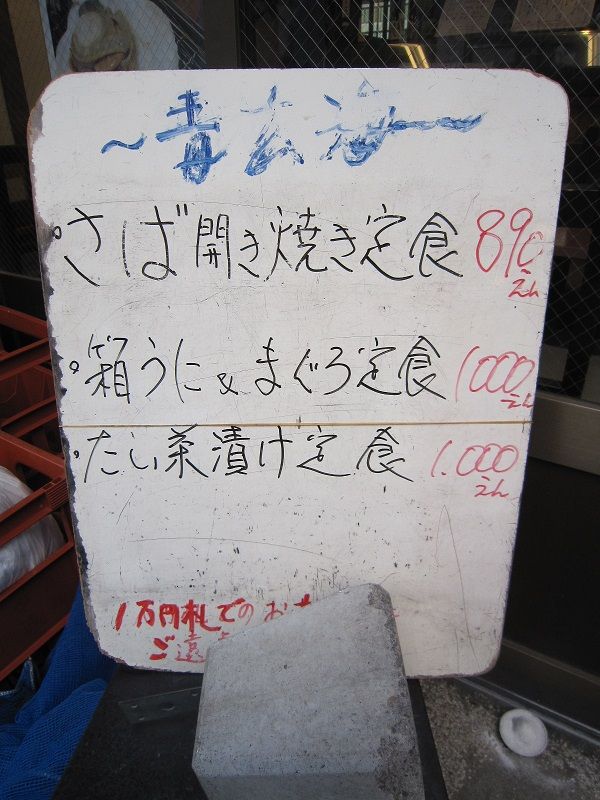 ～青玄海～
・さば開き焼き定食 890
えん
・箱うに&まぐろ定食 1000
えん
・たい茶漬け定食 1.000
えん
1万円札でのお
ご遠